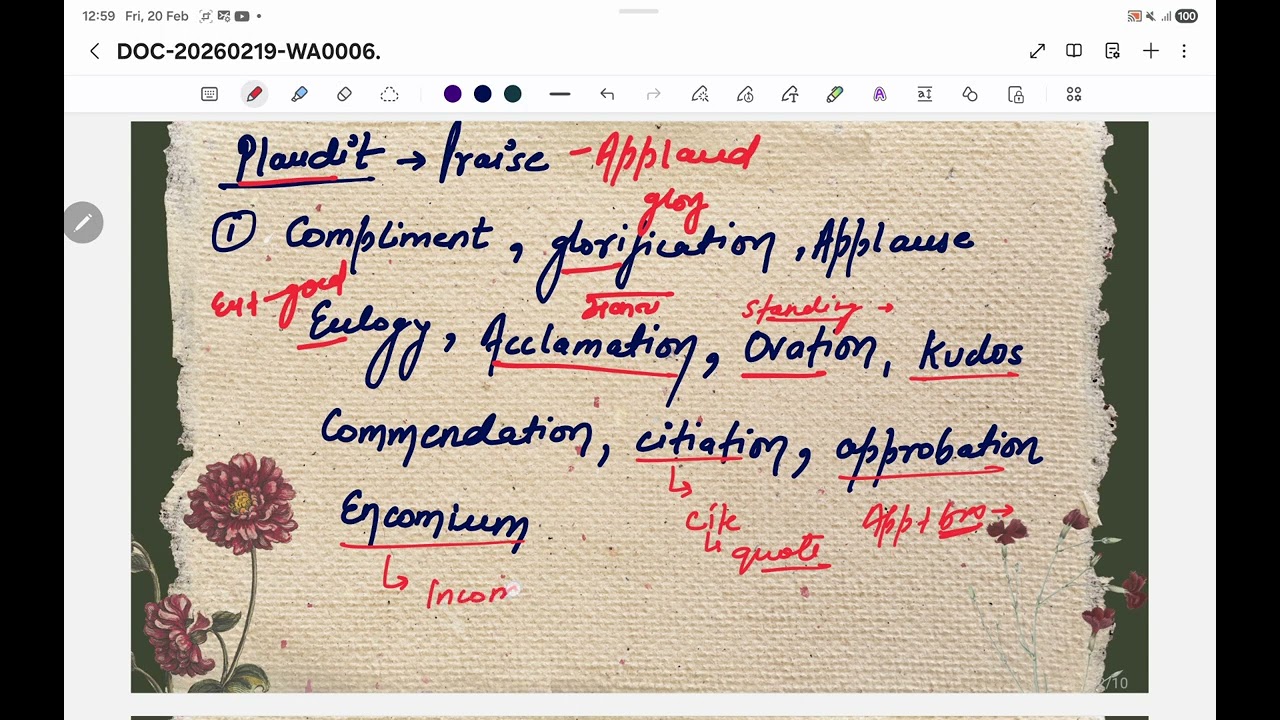 12:59 Fri, 20 Feb
100
DOC-20260219-WA0006.
Plaudit → Praise - Applaud
gloy
① Compliment, glorification, Applause
Eu+ good
standing →
Eulogy, Acclamation, Ovation, Kudos
Commendation, citiation, approbation
Encomium
cite
App+ bro →
quote
Incom
/10